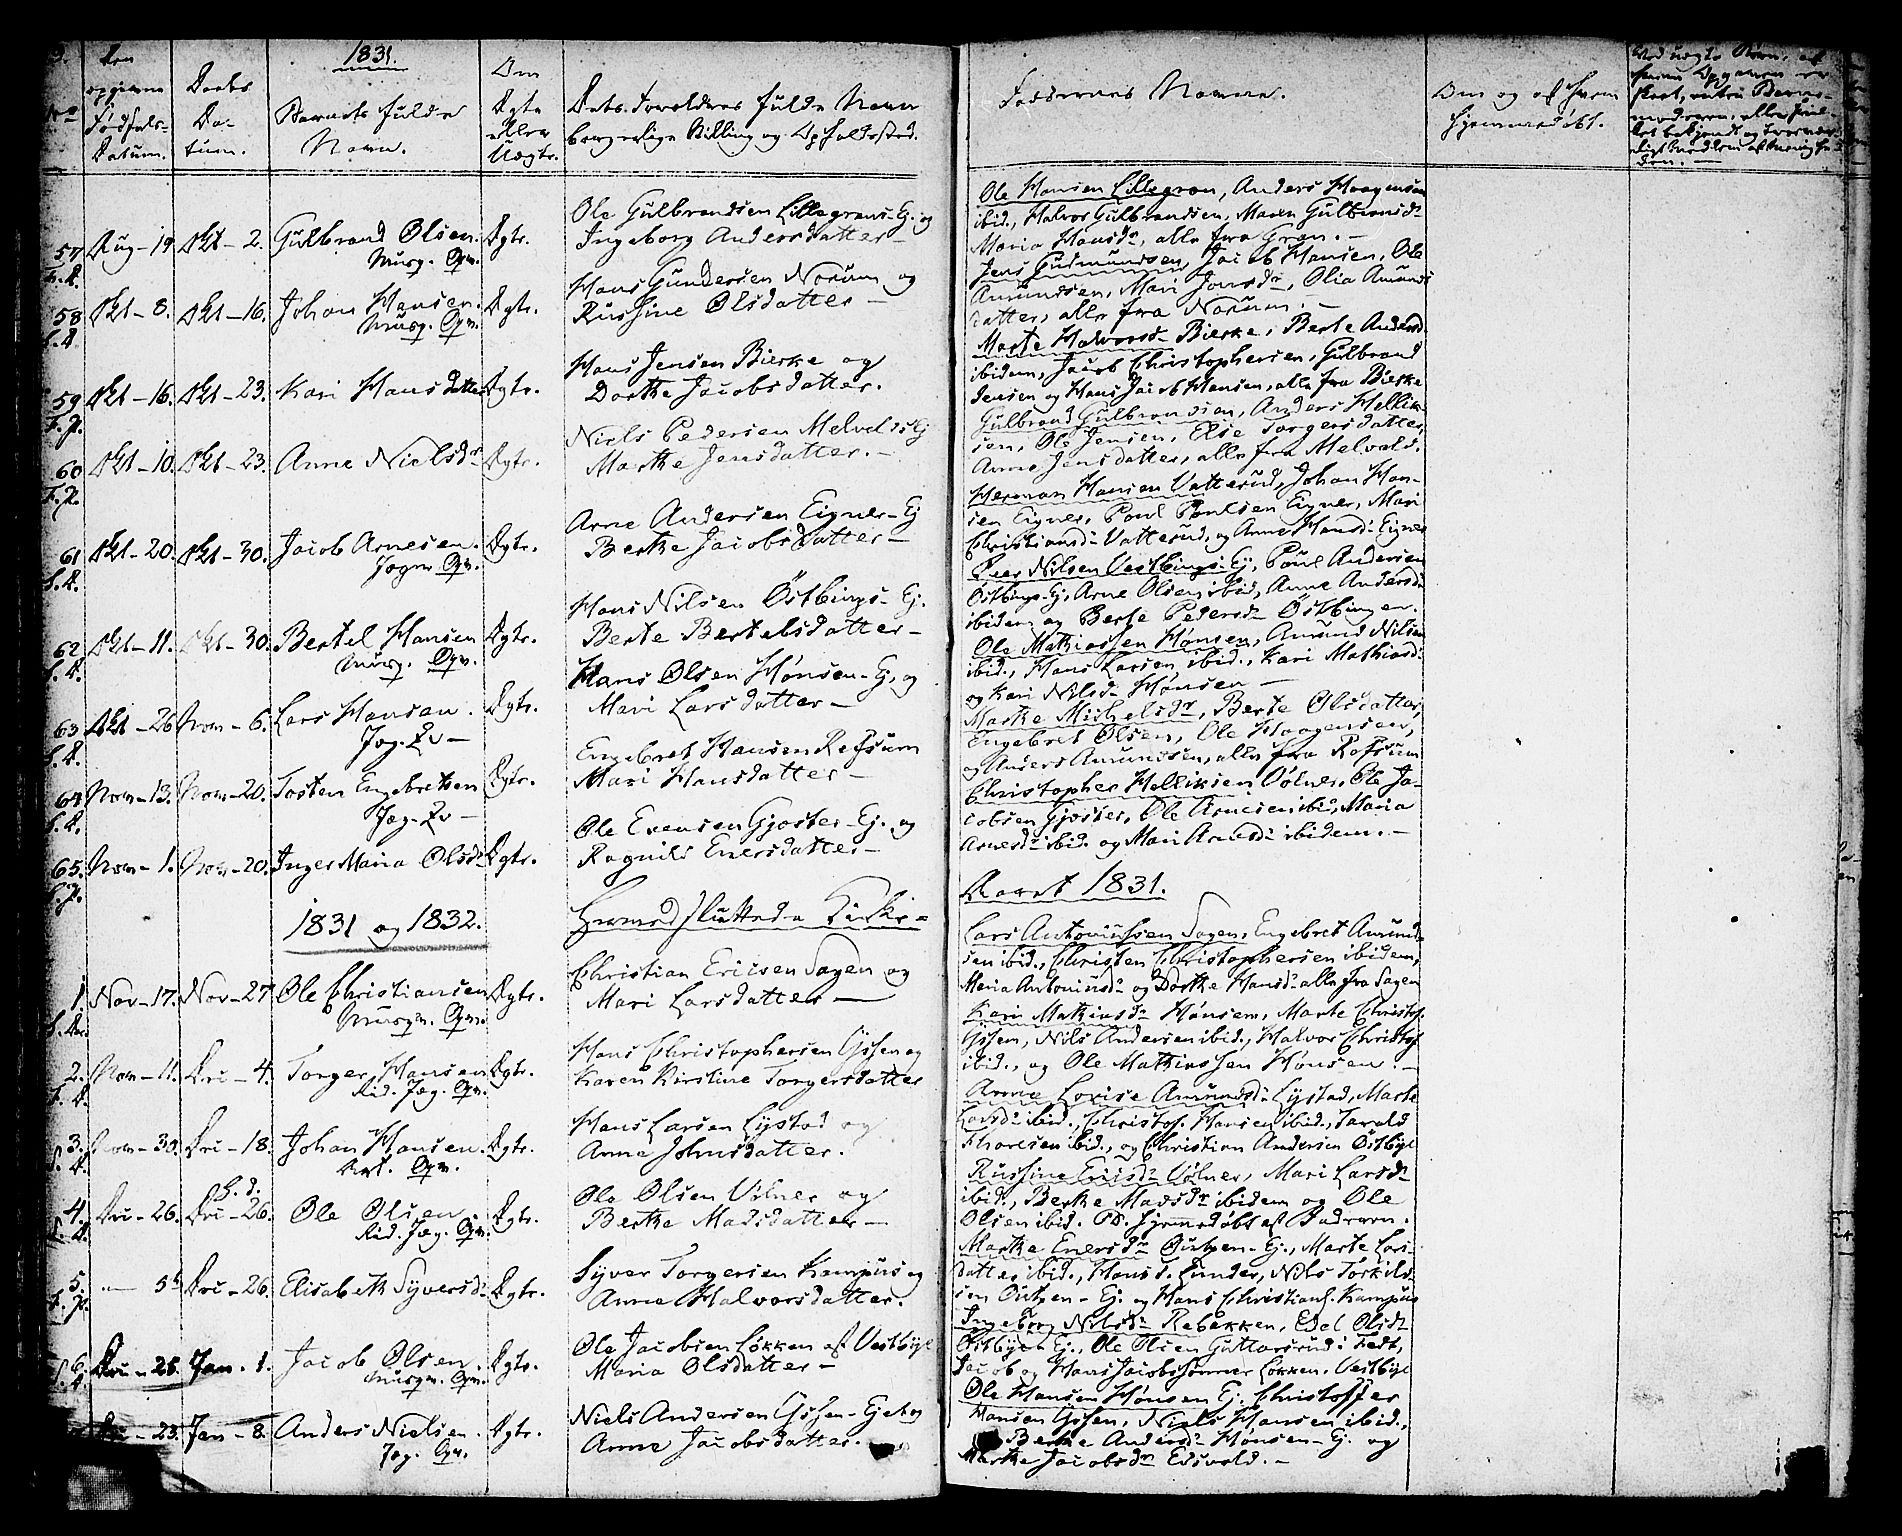 1831.
Barnets fulde
Navn.
Om
Ægte
eller
Uægte.
Daabs
Da-
tum.
Fødsels-
Datum.
Faddernes Navne.
Om og af hvem
hjemmedøbt.
57 Aug - 19. Okt - 2. Gulbrand Olsen. Ægte. Ole Gulbrandsen Lillegrans-Ej. og
Ingeborg Andersdatter -
Ole Hansen Lillegran, Anders Haagensen
ibid., Halvor Gulbrandsen, Maren Gulbransd.
Maria Hansdr, alle fra Gran. -
58 Okt - 8. Okt - 16. Johan Hansen. Ægte. Hans Gundersen Norum og
Russine Olsdatter -
Jens Gudmundsen, Jacob Hansen, Ole
Amundsen, Mari Jonsdr, Olia Amunds
datter, alle fra Norum. -
59 Okt - 16. Okt - 23. Kari Hansdatter Ægte. Hans Jensen Bierke og
Dorthe Jacobsdatter.
Marte Halvorsd. Bierke, Berte Andersd.
ibidem, Jacob Christophersen, Gulbrand
Jensen og Hans Jacob Hansen, alle fra Bierke
60 Okt - 10. Okt - 23. Anne Nielsdr Ægte. Niels Pedersen Melvolds Ej
Marthe Jensdatter. -
Gulbrand Gulbrandsen, Anders Hellik-
sen, Ole Jensen, Else Torgersdatter,
Anne Jensdatter, alle fra Melvold.
61 Okt - 20. Okt - 30. Jacob Arnesen. Ægte. Arne Andersen Eigner-Ej
Berthe Jacobsdatter -
Herman Hansen Vatterud, Johan Han-
sen Eigner, Poul Poulsen Eigner, Mari
Christiansd. Vatterud, og Anne Hansd. Eigner
62 Okt - 11. Okt - 30. Bertel Hansen Ægte. Hans Nilsen Østbings-Ej.
Berte Bertelsdatter -
Peer Nilsen Vestbings-Ej, Poul Andersen
Østbings-Ej, Arne Olsen ibid, Anne Andersd.
ibidem og Berte Pedersd. Østbingen.
63 Okt - 26 Nov - 6. Lars Hansen. Ægte. Hans Olsen Hønsen-Ej. og
Mari Larsdatter -
Ole Mathiassen Hønsen, Amund Nilsen
ibid., Hans Larsen ibid., Kari Mathiasd.
og Kari Nilsd. Hønsen -
64 Nov - 13. Nov - 20. Tosten Engebretsen Ægte. Engebret Hansen Refsum
Mari Hansdatter -
Marthe Michelsdr, Berte Olsdatter,
Engebret Olsen, Ole Haagensen,
og Anders Amundsen, alle fra Refsum
65 Nov - 1. Nov - 20. Inger Maria Olsdr Ægte. Ole Evensen Gjøster-Ej. og
Ragnild Enersdatter -
Christopher Helliksen Volner, Ole Ja-
cobsen Gjøster, Ole Arnesen ibid, Maria
Arnesdr ibid. og Mari Arnesd. ibidem. -
1831 og 1832. Hermed sluttede Kirke-
Aaret 1831.
1. Nov - 17. Nov - 27 Ole Christiansen Ægte. Christian Ericsen Sagen og
Mari Larsdatter -
Lars Antoniussen Sagen, Engebret Amund-
sen ibid., Christen Christophersen ibidem,
Maria Antoniusd. og Dorthe Hansd. alle fra Sagen
2. Nov - 11. Dec - 4. Torger Hansen Ægte. Hans Christophersen Gssen og
Karen Kirstine Torgersdatter
Kari Mathiasd. Hønsen, Marte Christof.
Gssen, Nils Andersen ibid., Halvor Christof
ibid., og Ole Mathiassen Hønsen. -
3. Nov - 30. Dec - 18. Johan Hansen. Ægte. Hans Larsen Lystad og
Anne Johnsdatter.
Anne Lovise Amundsd. Lystad, Marte
Larsd. ibid., Christof. Hansen ibid., Tarald
Thoresen ibid., og Christian Andersen Østbye
4. Dec - 26. Dec - 26. Ole Olsen. Ægte. Ole Olsen Volner og
Berthe Madsdatter -
Russine Ericsd. Volner, Mari Larsd.
ibid., Berthe Madsdr ibidem og Ole
Olsen ibid. NB. hjemmedøbt af Faderen.
5. Dec - 26. Elisabeth Syversd. Ægte. Syver Torgersen Kampus og
Anne Halvorsdatter.
Marthe Enersdr Outzen-Ej., Marte Lars-
datter ibid., Hans J. Lunder, Nils Torkils-
sen Outzen-Ej. og Hans Christians. Kampus
6. Dec - 26. Jan. 1. Jacob Olsen. Ægte. Ole Jacobsen Løkken af Vestbye
Maria Olsdatter -
Ingeborg Nilsd. Rebakken, Edel Olsd.
Østbye Ej., Ole Olsen Guttorsrud i Fedt,
Jacob og Hans Jacobssønner Løkken, Vestbye
Dec - 23. Jan - 8. Anders Nielsen. Ægte. Niels Andersen Gssen-Ejet og
Anne Jacobsdatter.
Ole Hansen Hønsen Ej. Christoffer
Hansen Gssen, Niels Hansen ibid.,
Berthe Andersd. Hønsen-Ej. og
Marthe Jacobsdr Eidsvold. -